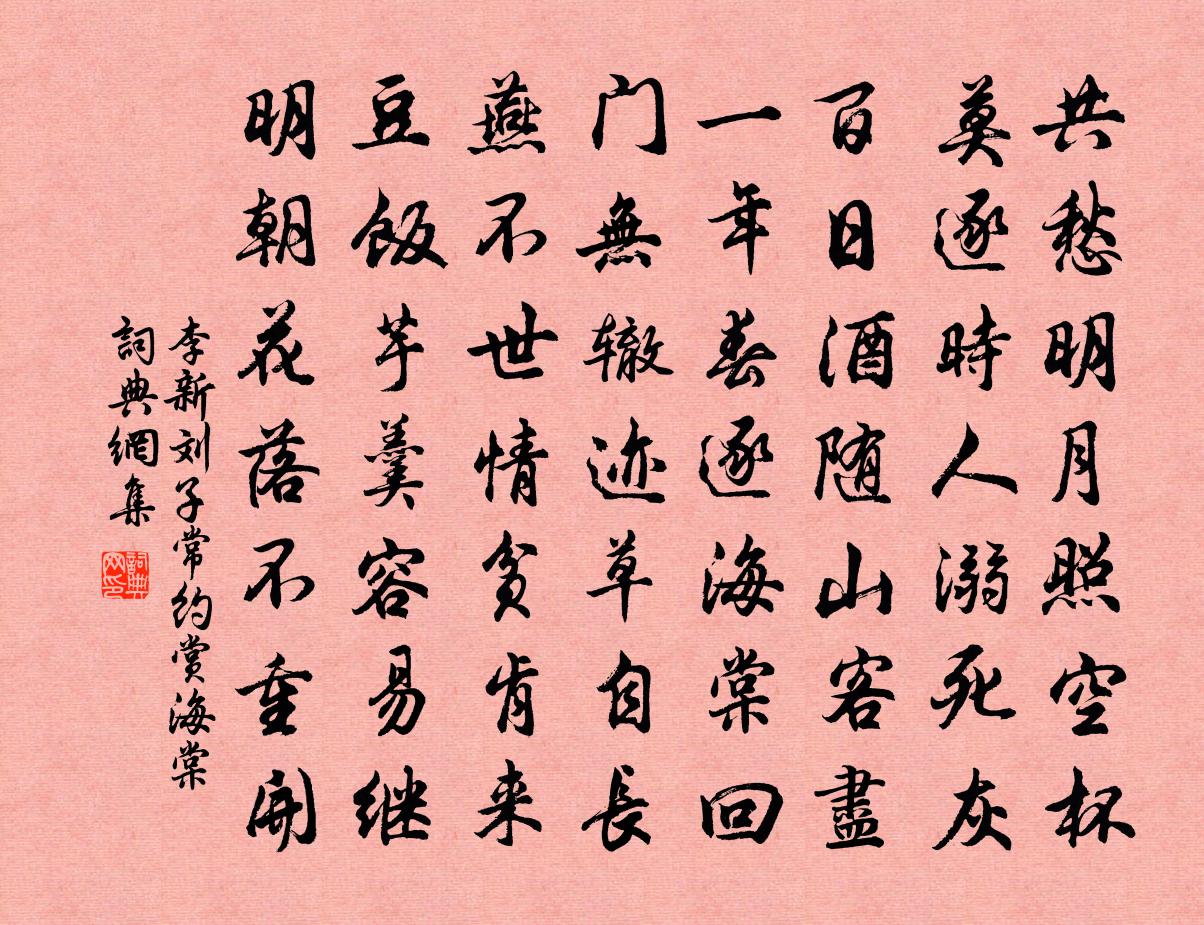 共愁明月照空杯
莫逐時人溺死灰
百日酒随山客盡
一年春逐海棠回
门無辙迹草自長
燕不世情贫肯来
豆飯芋羹容易继
明朝花落不重開
李新刘子常约赏海棠
詞典網集
詞典网印